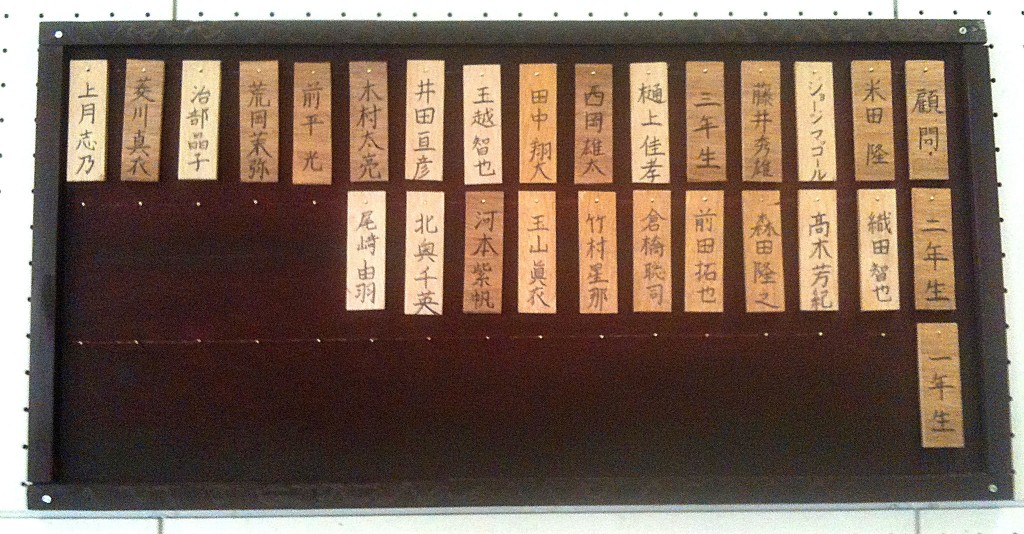 顧問
米田 隆
ショージマゴール
藤井秀雄
三年生
樋上佳孝
西岡雄太
田中翔大
王越智也
井田亘彦
木村太亮
前平光
荒岡茉弥
治部晶子
菱川真衣
上月志乃
二年生
織田智也
高木芳紀
森田隆之
前田拓也
倉橋聡司
竹村星那
玉山眞衣
河本紫帆
北奥千英
尾崎由羽
一年生